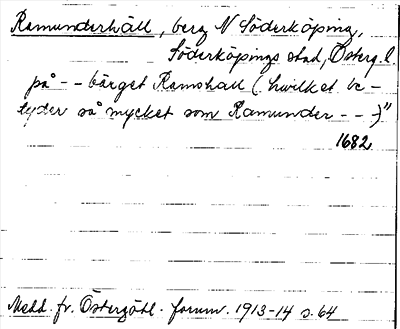 Ramunderhäll, berg N Söderköping,
Söderköpings stad, Österg. l.
på - - bärget Ramshall (hwilket be-
tyder så mycket som Ramunder - - -)"
1682
Medd. fr. Östergötl. fornm. 1913-14 s. 64